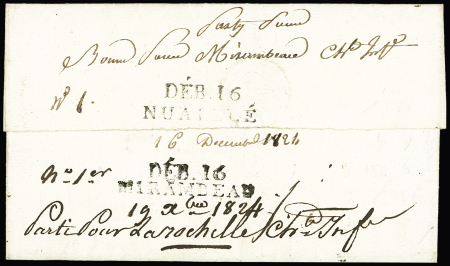 Party Pour
Bonne Pour Mirambeau Chte Infre
No 1.
DÉB. 16
NUAILLÉ
16 Decembre 1824
No 1er
DÉB. 16
MIRAMBEAU
19 Xbre 1824
Parti Pour Larochelle Chte Infre